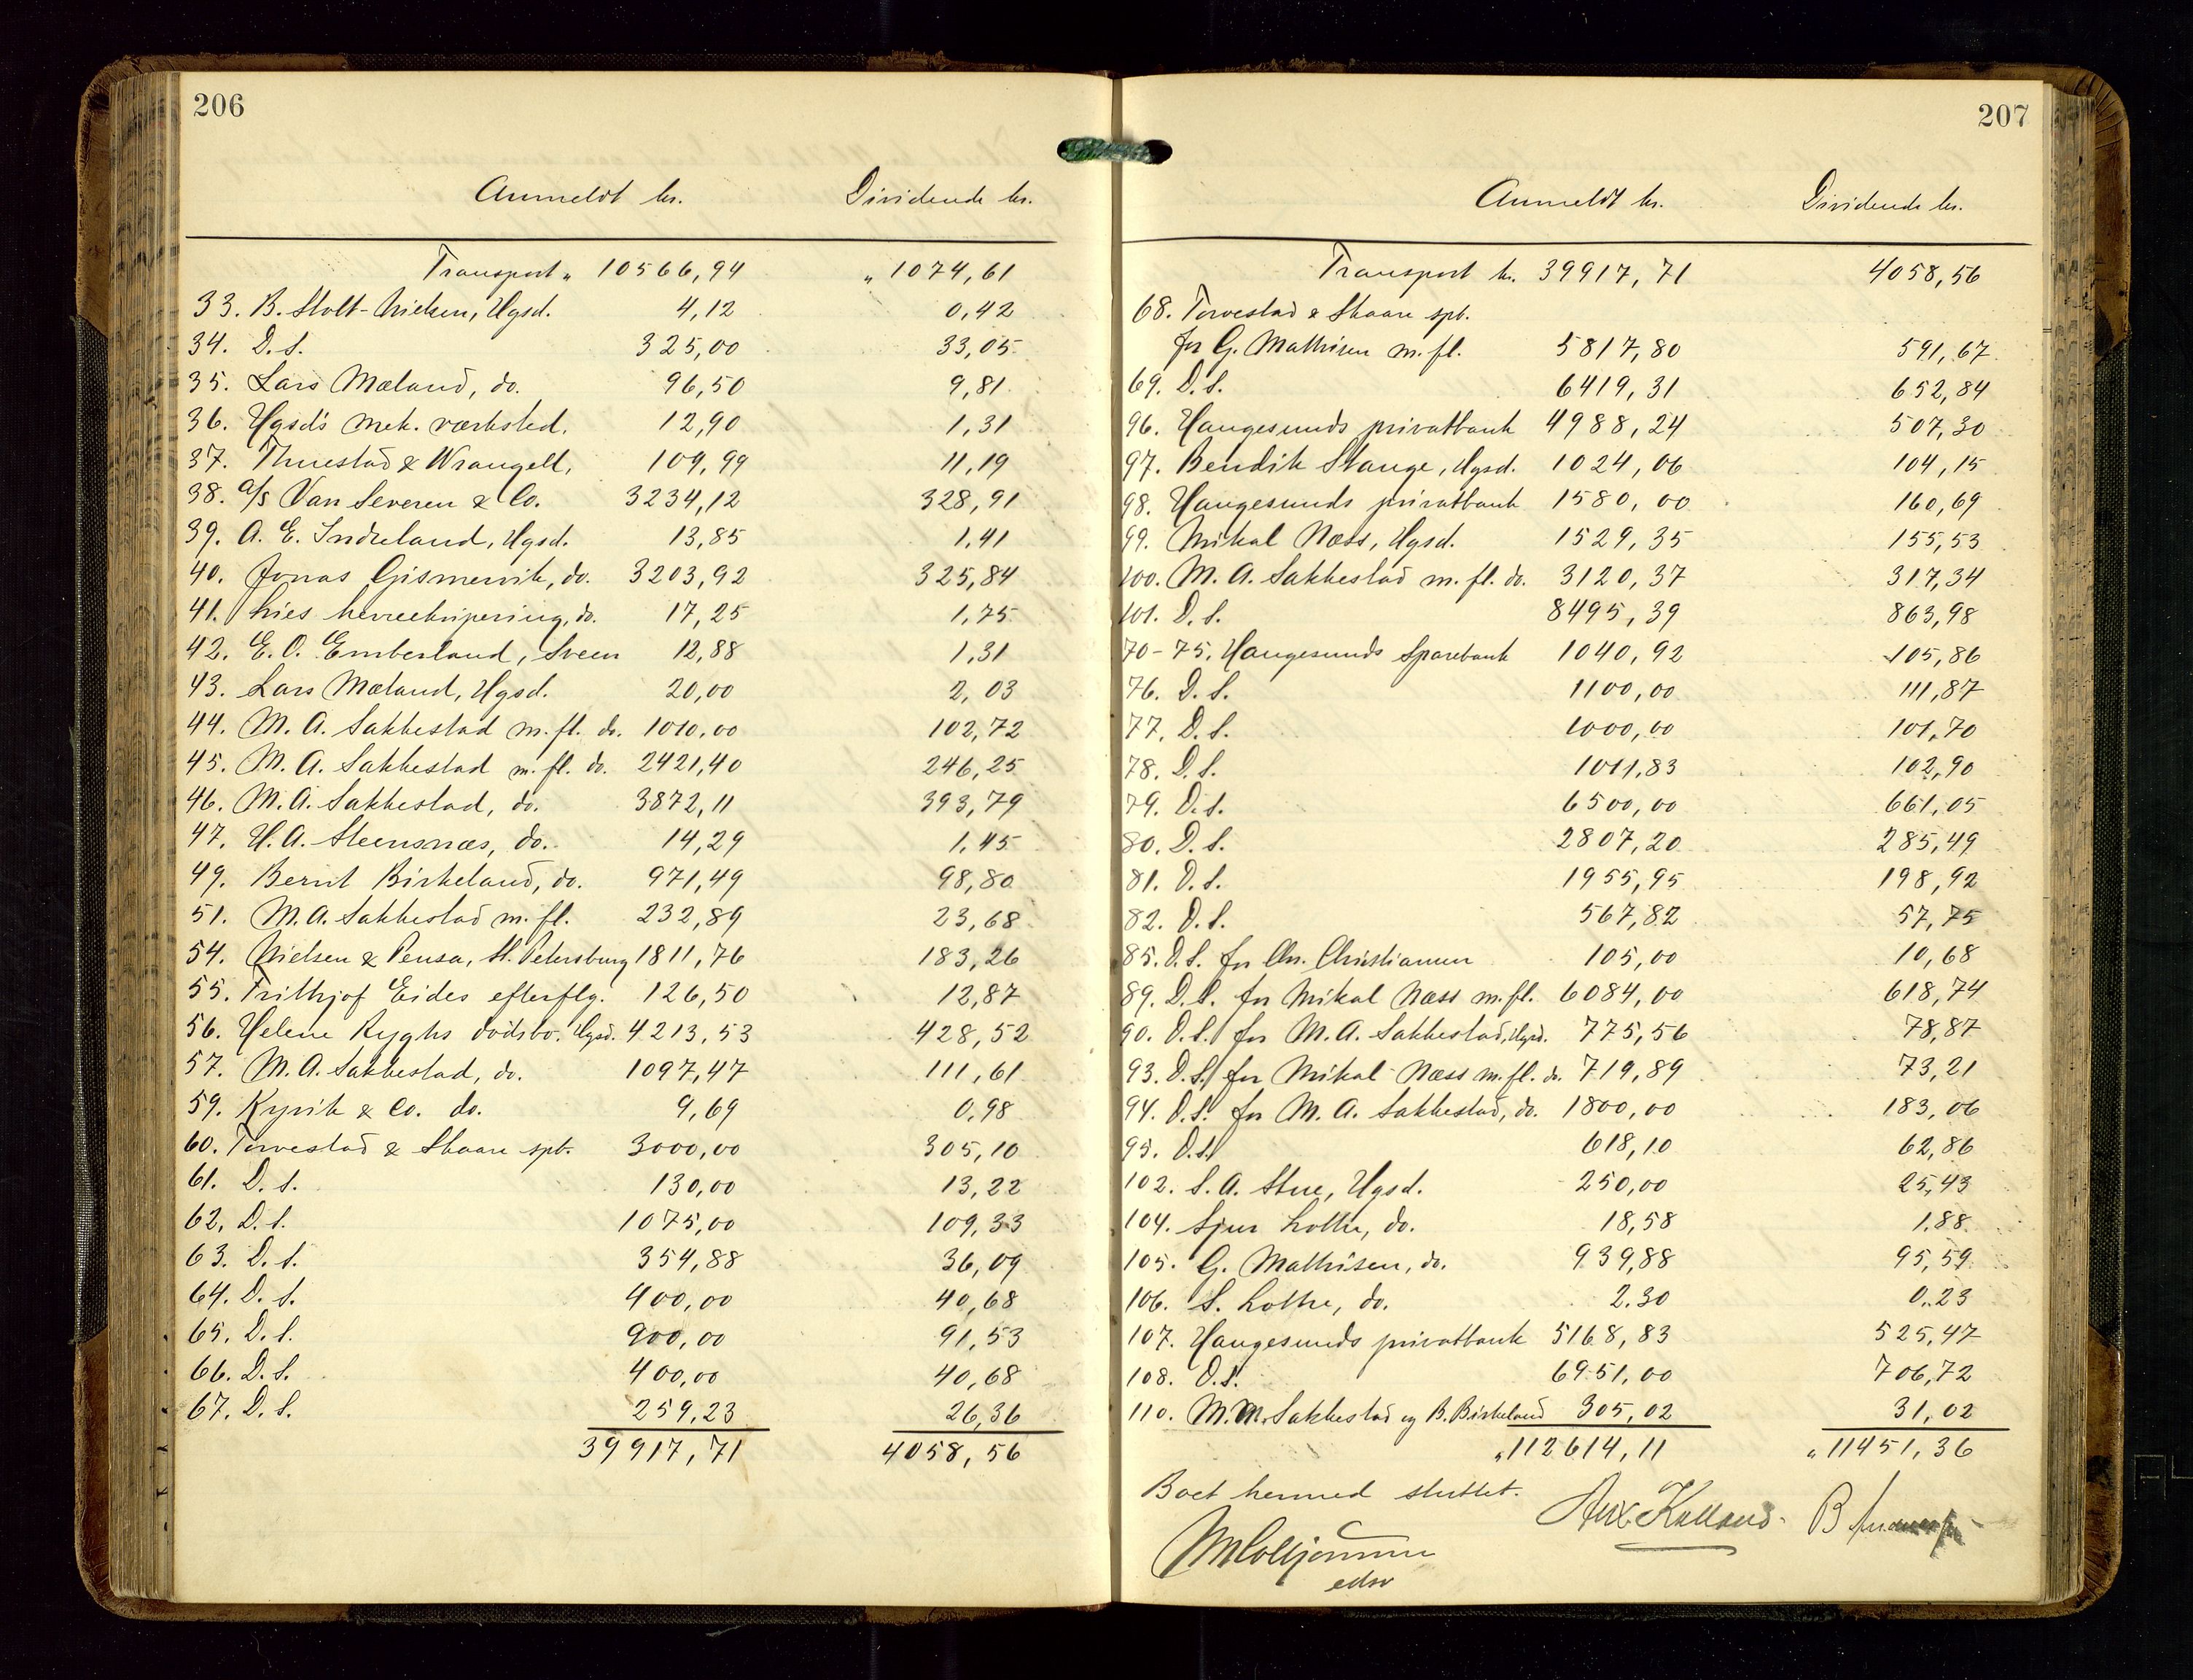 206
Anmeldt kr. Dividende kr.
Transport " 10566,94 " 1074,61
33. B. Stolt-Nielsen, Hgsd. 4,12 0,42
34. D. S. 325,00 33,05
35. Lars Mæland, do. 96,50 9,81
36. Hgsd's mek. værksted. 12,90 1,31
37. Thuestad & Wrangell, 109,99 11,19
38. A/s Van Severen & Co. 3234,12 328,91
39. A. E. Indreland, Hgsd. 13,85 1,41
40. Jonas Gismervik, do. 3203,92 325,84
41. Lies herreekvipering, do. 17,25 1,75
42. E. O. Emberland, Sveen 12,88 1,31
43. Lars Mæland, Hgsd. 20,00 2,03
44. M. A. Sakkestad m. fl. do. 1010,00 102,72
45. M. A. Sakkestad m. fl. do. 2421,40 246,25
46. M. A. Sakkestad, do. 3872,11 393,79
47. H. A. Steensnæs, do. 14,29 1,45
49. Bernt Birkeland, do. 971,49 98,80
51. M. A. Sakkestad m. fl. 232,89 23,68
54. Nielsen & Pensa, St. Petersburg 1811,76 183,26
55. Frithjof Eides efterflg. 126,50 12,87
56. Helene Ryghs dødsbo. Hgsd. 4213,53 428,52
57. M. A. Sakkestad, do. 1097,47 111,61
59. Kyvik & Co. do. 9,69 0,98
60. Torvestad & Skaare spb. 3000,00 305,10
61. D. S. 130,00 13,22
62. D. S. 1075,00 109,33
63. D. S. 354,88 36,09
64. D. S. 400,00 40,68
65. D. S. 900,00 91,53
66. D. S. 400,00 40,68
67. D. S. 259,23 26,36
39917,71 4058,56
207
Anmeldt kr. Dividende kr.
Transport kr. 39917,71 4058,56
68. Torvestad & Skaare spb.
for G. Mathisen m. fl. 5817,80 591,67
69. D. S. 6419,31 652,84
96. Haugesunds privatbank 4988,24 507,30
97. Bendik Stange, Hgsd. 1024,06 104,15
98. Haugesunds privatbank 1580,00 160,69
99. Mikal Næss, Hgsd. 1529,35 155,53
100. M. A. Sakkestad m. fl. do. 3120,37 317,34
101. D. S. 8495,39 863,98
70-75. Haugesunds Sparebank 1040,92 105,86
76. D. S. 1100,00 111,87
77. D. S. 1000,00 101,70
78. D. S. 1011,83 102,90
79. D. S. 6500,00 661,05
80. D. S. 2807,20 285,49
81. D. S. 1955,95 198,92
82. D. S. 567,82 57,75
85. D. S. for Chr. Christiansen 105,00 10,68
89. D. S. for Mikal Næss m. fl. 6084,00 618,74
90. D. S. for M. A. Sakkestad, Hgsd. 775,56 78,87
93. D. S. for Mikal Næss m. fl. do. 719,89 73,21
94. D. S. for M. A. Sakkestad, do. 1800,00 183,06
95. D. S. 618,10 62,86
102. S. A. Stue, Hgsd. 250,00 25,43
104. Sjur Lothe, do. 18,58 1,88
105. G. Mathisen, do. 939,88 95,59
106. S. Lothe, do. 2.30 0.23
107. Haugesunds privatbank 5168,83 525,47
108. D. S. 6951,00 706,72
110. M. M. Sakkestad og B. Birkeland 305,02 31,02
" 112614,11 " 11451,36
Boet hermed sluttet.